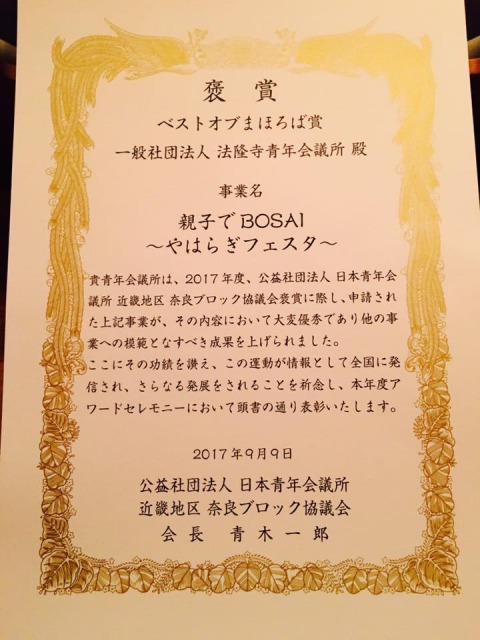 褒賞
ベストオブまほろば賞
一般社団法人 法隆寺青年会議所 殿
事業名
親子でBOSAI
～やはらぎフェスタ～
貴青年会議所は、2017年度、公益社団法人 日本青年会
議所 近畿地区 奈良ブロック協議会褒賞に際し、申請され
た上記事業が、その内容において大変優秀であり他の事
業への模範となすべき成果を上げられました。
ここにその功績を讃え、この運動が情報として全国に発
信され、さらなる発展をされることを祈念し、本年度ア
ワードセレモニーにおいて頭書の通り表彰いたします。
2017年9月9日
公益社団法人 日本青年会議所
近畿地区 奈良ブロック協議会
会長 青木一郎